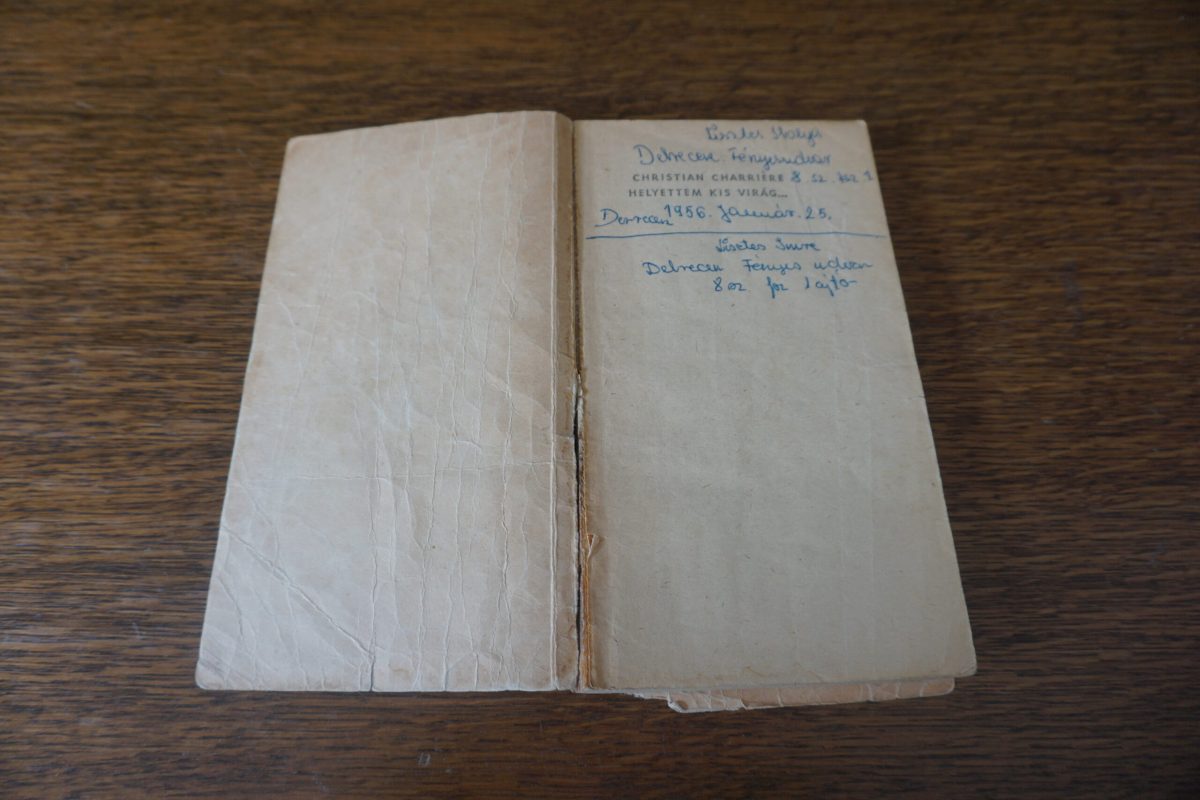 Lisztes
Debrecen. Fényesudvar
CHRISTIAN CHARRIÈRE 8. sz. fsz 1
HELYETTEM KIS VIRÁG...
1956. Január. 25.
Lisztes Imre
Debrecen Fényes udvar
8 sz. fsz 1 ajtó